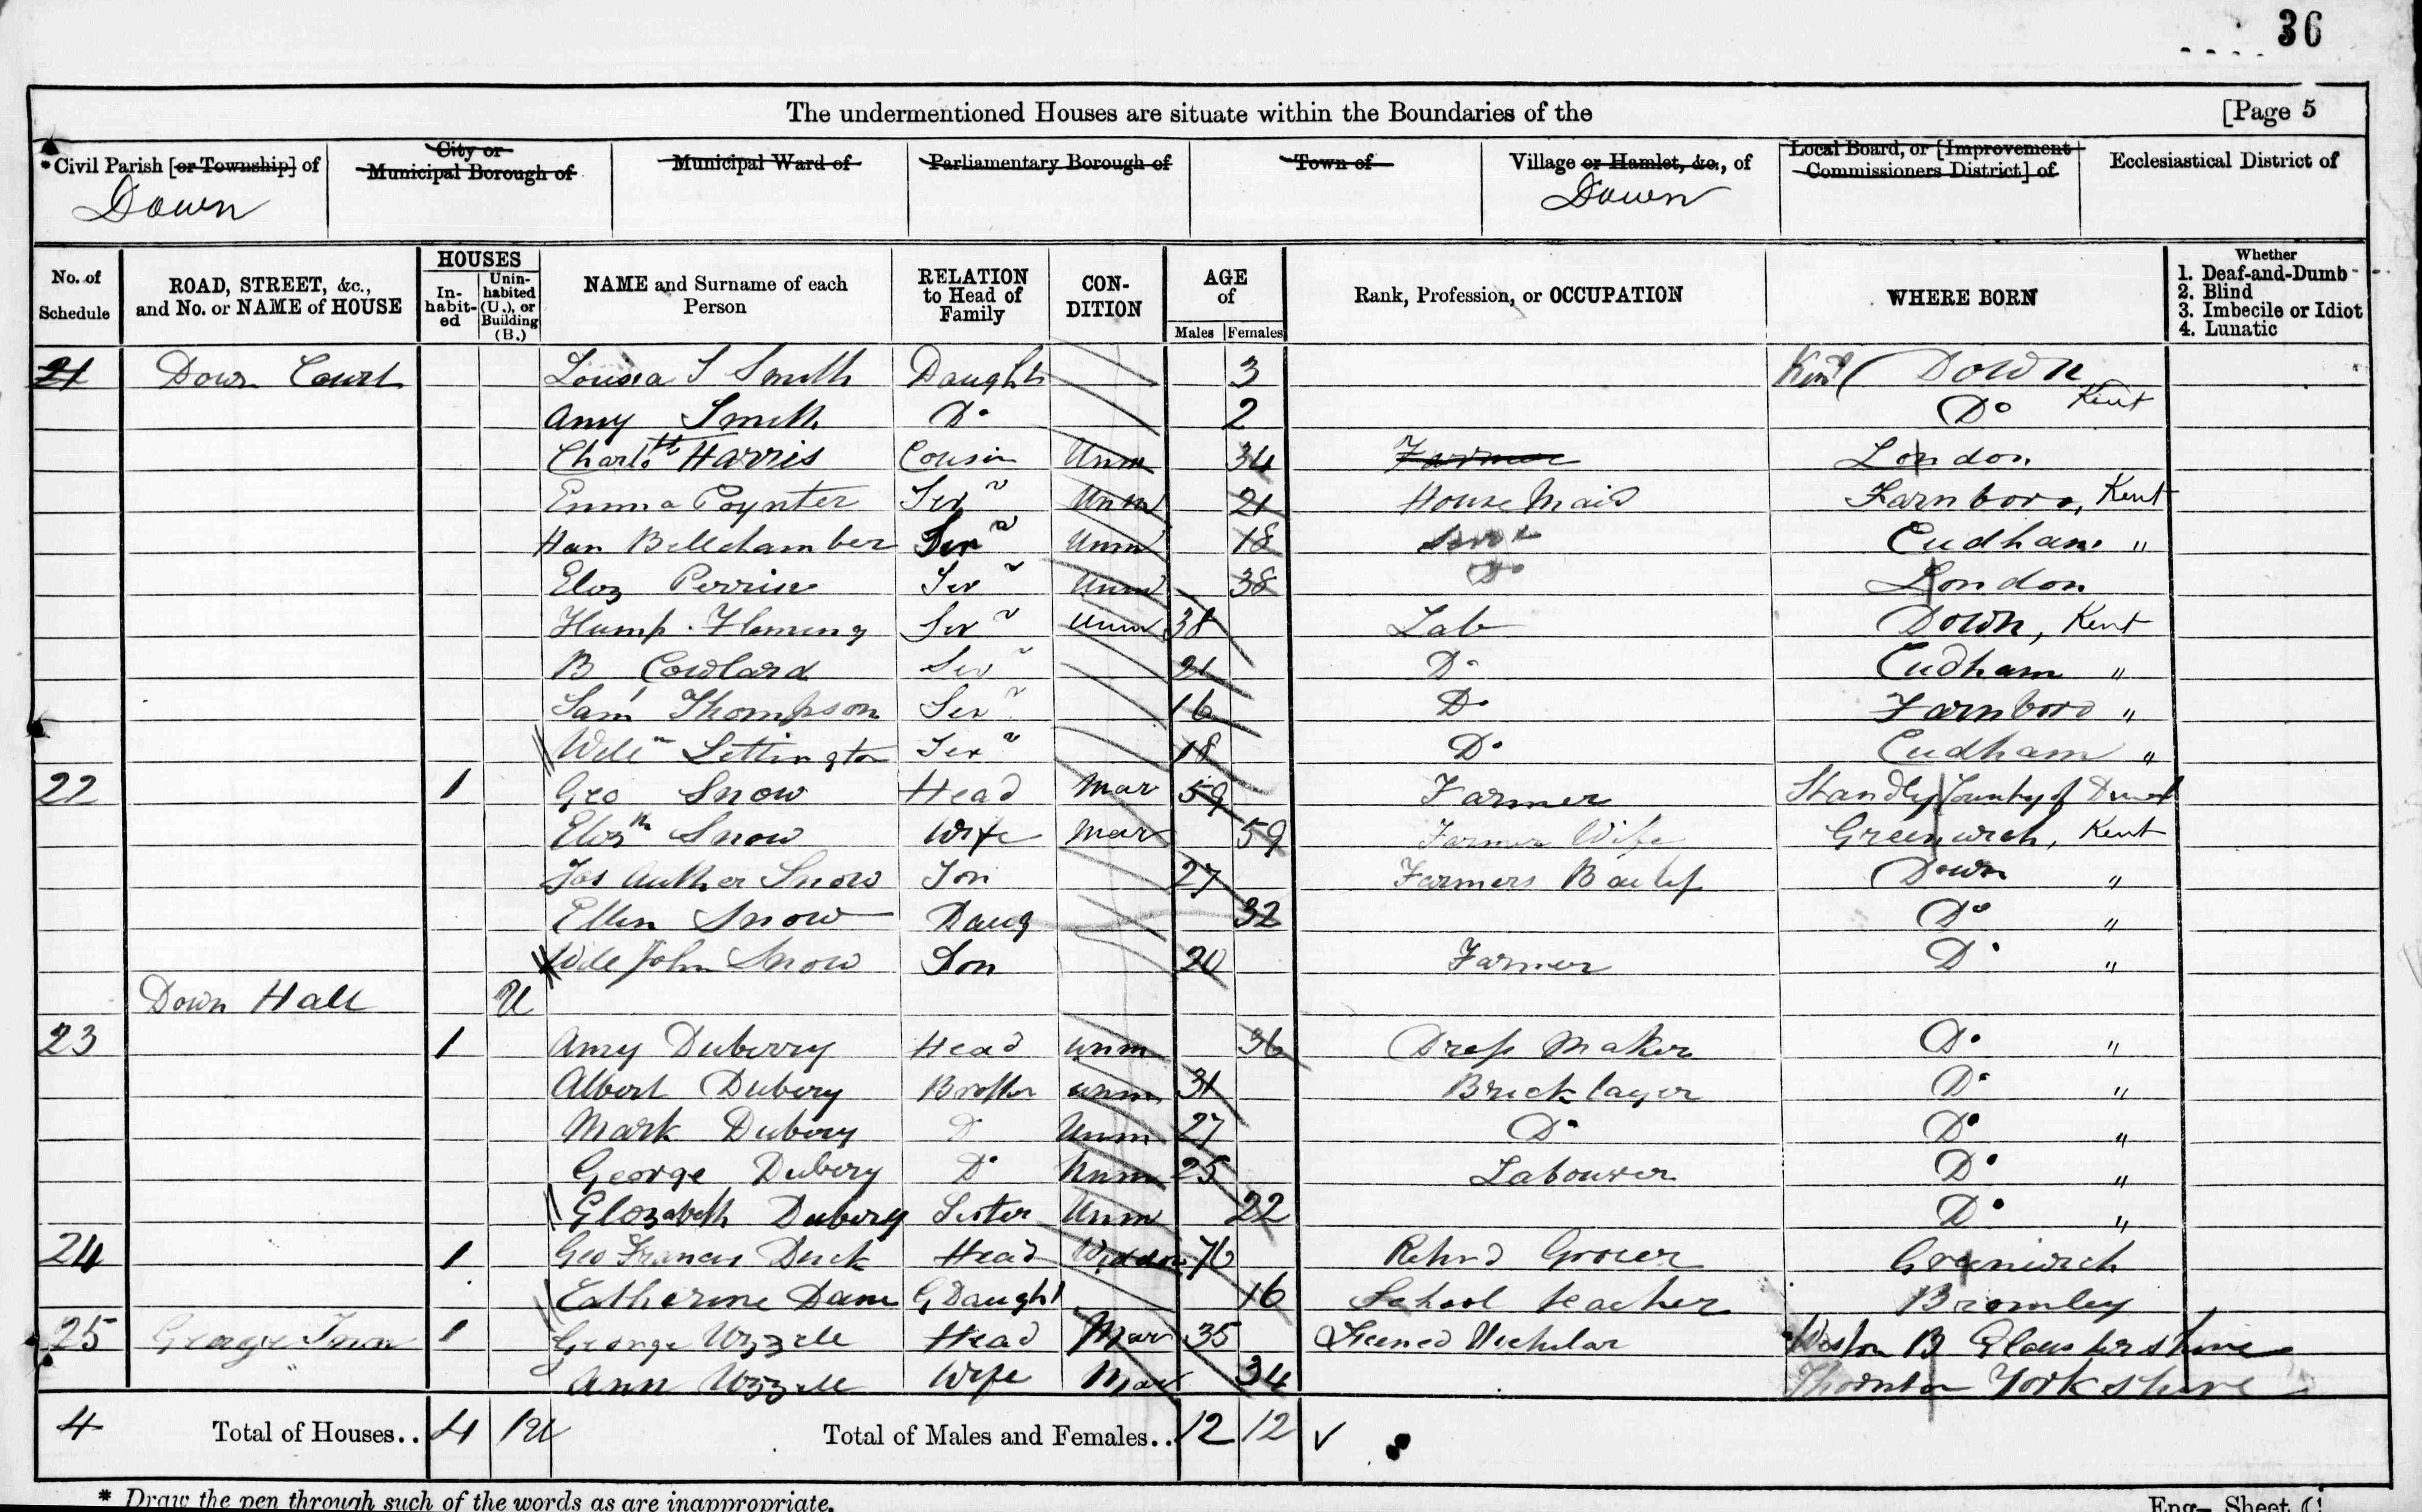 36
The undermentioned Houses are situate within the Boundaries of the [Page 5
*Civil Parish [or Township] of City or Municipal Borough of Municipal Ward of Parliamentary Borough of Town of Village or Hamlet, &c., of Local Board, or [Improvement Commissioners District] of Ecclesiastical District of
Down Down
No. of Schedule ROAD, STREET, &c., and No. or NAME of HOUSE HOUSES In-habit-ed Unin-habited (U.), or Building (B.) NAME and Surname of each Person RELATION to Head of Family CON-DITION AGE of Males Females Rank, Profession, or OCCUPATION WHERE BORN Whether 1. Deaf-and-Dumb 2. Blind 3. Imbecile or Idiot 4. Lunatic
21 Down Court Louisa S Smith Daught 3 Kent Down
Amy Smith Do 2 Do Kent
Charltte Harris Cousin Unm 34 Farmer London
Emma Poynter Ser Unm 21 House Maid Farnboro, Kent
Han Bellchamber Ser Unm 18 Cudham "
Eliz Perrin Ser Unm 38 Do London
Hump. Fleming Ser Unm 38 Lab Down, Kent
B Cowlard Ser 21 Do Cudham "
Saml Thompson Ser 16 Do Farnboro "
Willm Lettington Ser 18 Do Cudham "
22 1 Geo Snow Head Mar 59 Farmer County of
Elizth Snow Wife Mar 59 Farmers Wife Greenwich, Kent
Jas Auther Snow Son 27 Farmers Bailif Down "
Ellen Snow Daug 32 Do "
Will John Snow Son 20 Farmer Do "
Down Hall U
23 1 Amy Duberry Head unm 36 Dress Maker Do "
Albert Dubery Brother unm 31 Bricklayer Do "
Mark Dubery D Unm 27 Do Do "
George Dubery Do Unm 25 Labourer Do "
Elozabeth Dubery Sister Unm 22 Do "
24 1 Geo Francis Head 76 Retird Grocer Greenwich
Catherine Dane G Daught 16 School teacher Bromley
25 George Inn 1 George Uzzell Head Mar 35
Ann Uzzell Wife Mar 34 Thornton Yorkshire
4 Total of Houses.. 4 1U Total of Males and Females.. 12 12
* Draw the pen through such of the words as are inappropriate.
Eng— Sheet